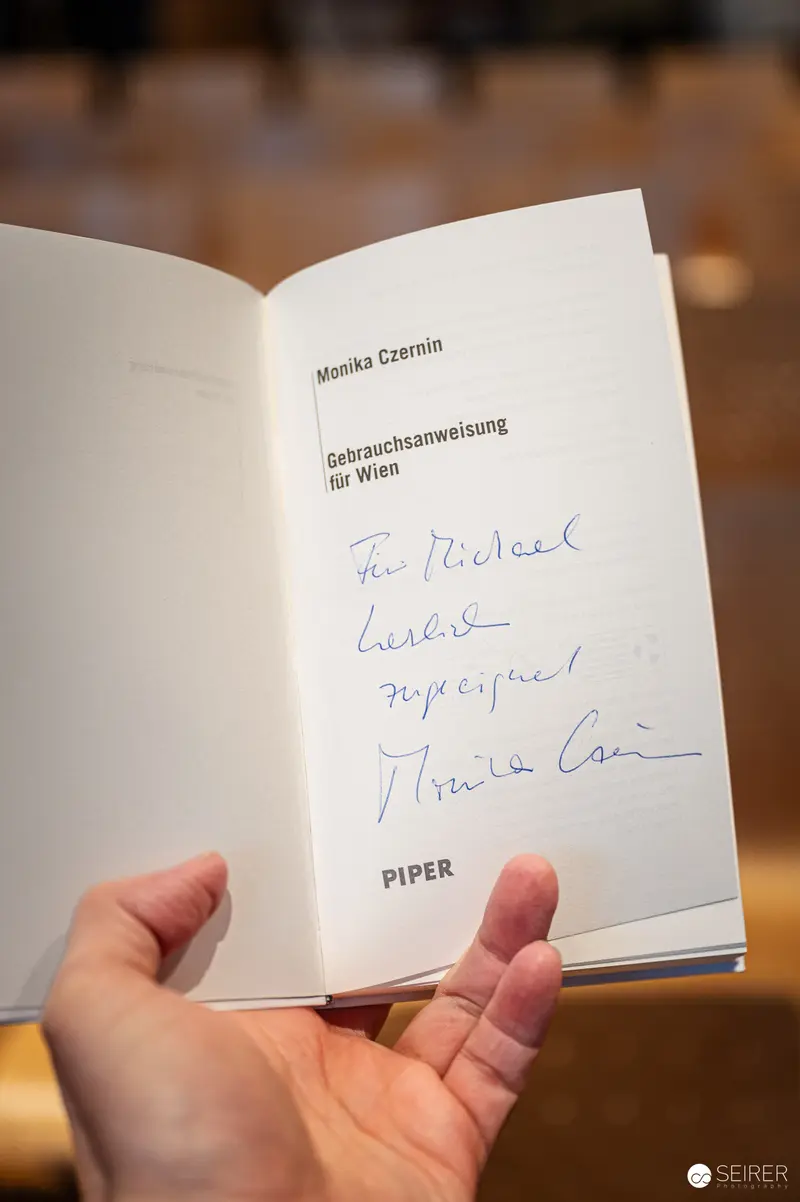 Monika Czernin
Gebrauchsanweisung
für Wien
Für Michael
herzlich
zugeeignet
Monika Czernin
PIPER
SEIRER
Photography